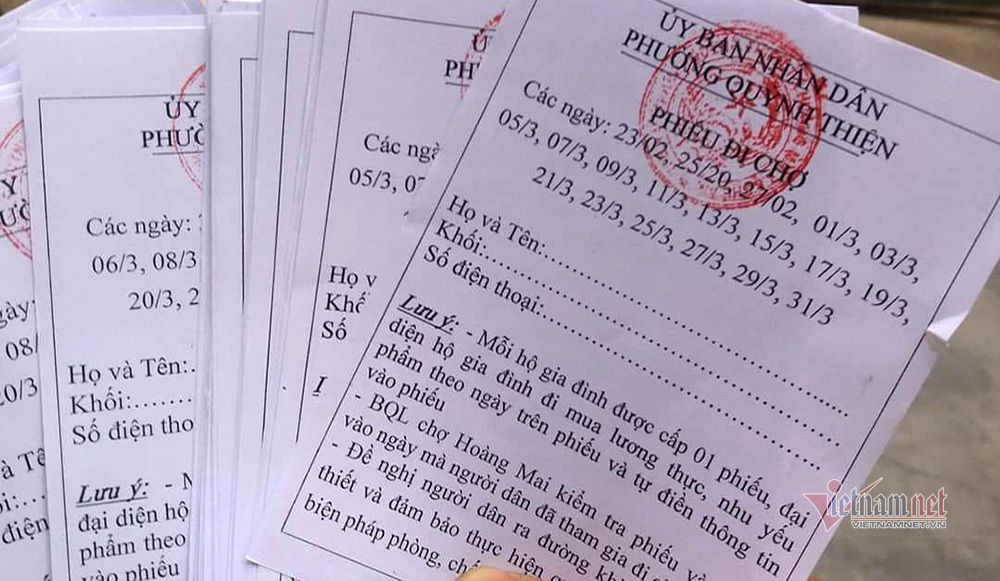 ỦY BAN NHÂN DÂN
PHƯỜNG QUỲNH THIỆN
PHIẾU ĐI CHỢ
Các ngày: 23/02, 25/20, 27/02, 01/3, 03/3,
05/3, 07/3, 09/3, 11/3, 13/3, 15/3, 17/3, 19/3,
21/3, 23/3, 25/3, 27/3, 29/3, 31/3
Họ và Tên:
Khối:
Số điện thoại:
Lưu ý: - Mỗi hộ gia đình được cấp 01 phiếu, đại
diện hộ gia đình đi mua lương thực, nhu yếu
phẩm theo ngày trên phiếu và tự điền thông tin
vào phiếu
- BQL chợ Hoàng Mai kiểm tra phiếu và
vào ngày mà người dân đã tham gia đi
- Đề nghị người dân ra đường
thiết và đảm bảo thực hiện
biện pháp phòng,
Các
05/3,
Họ và
Số
ỦY
Các ngày:
06/3, 08/3
20/3, 2
Họ và Tên:
Khối:
Số điện tho
Lưu ý: -
đại diện hộ
phẩm theo
vào phiếu
08/
20/3
điện
vietnamnet
VIETNAMNET.VN